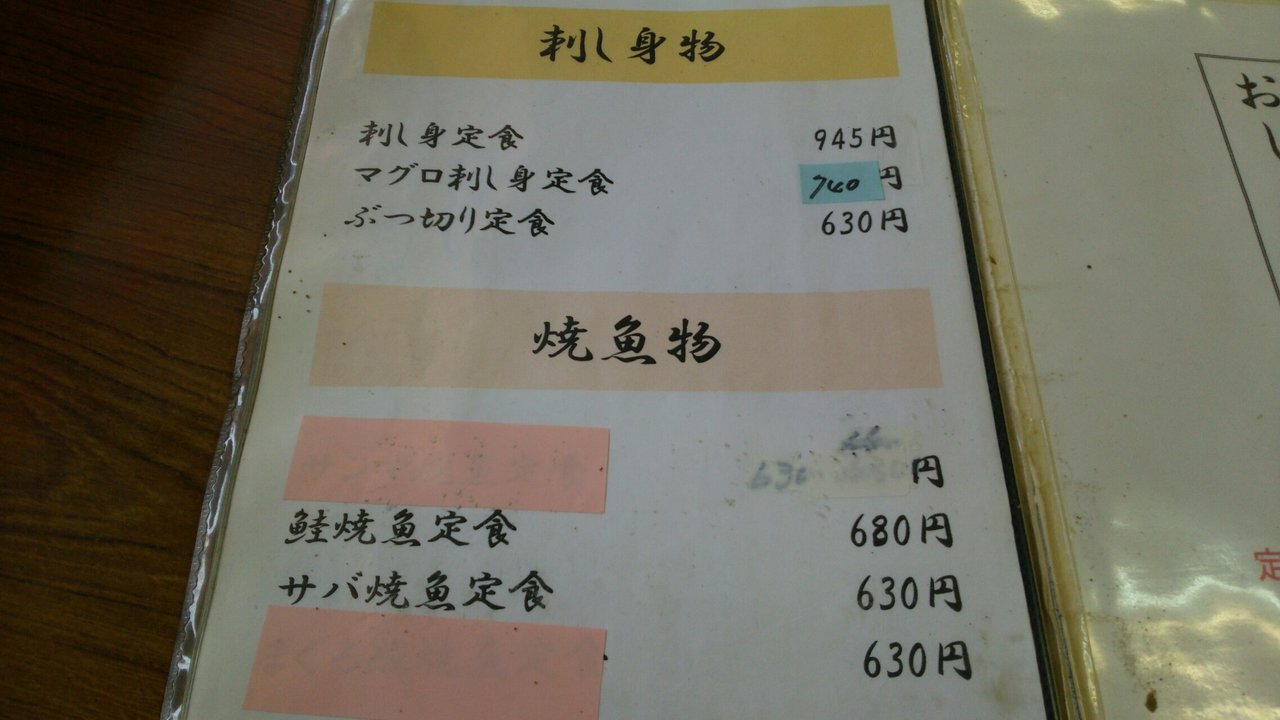 刺し身物
刺し身定食 945円
マグロ刺し身定食 740円
ぶつ切り定食 630円
焼魚物
円
鮭焼魚定食 680円
サバ焼魚定食 630円
630円
お
し
定